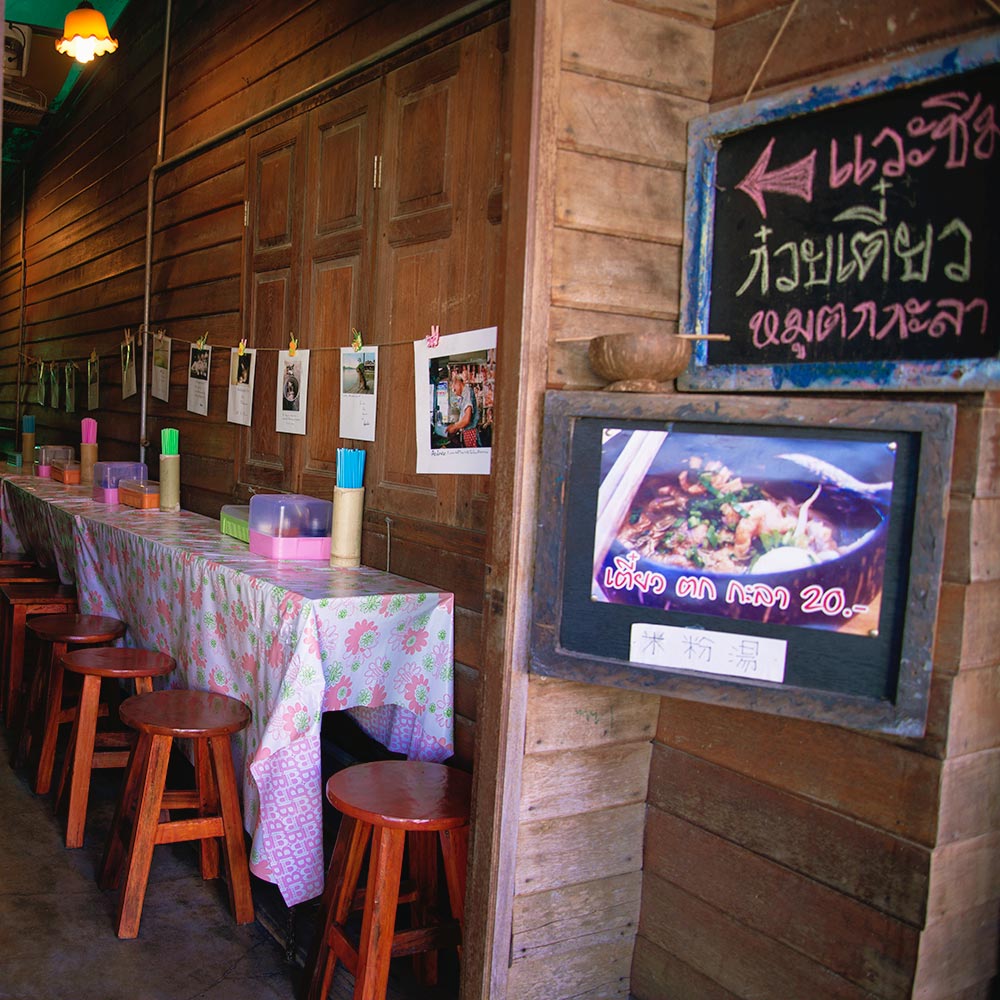 แวะชิม
ก๋วยเตี๋ยว
หมูตกกะลา
เตี๋ยว ตก กะลา 20.-
米粉湯